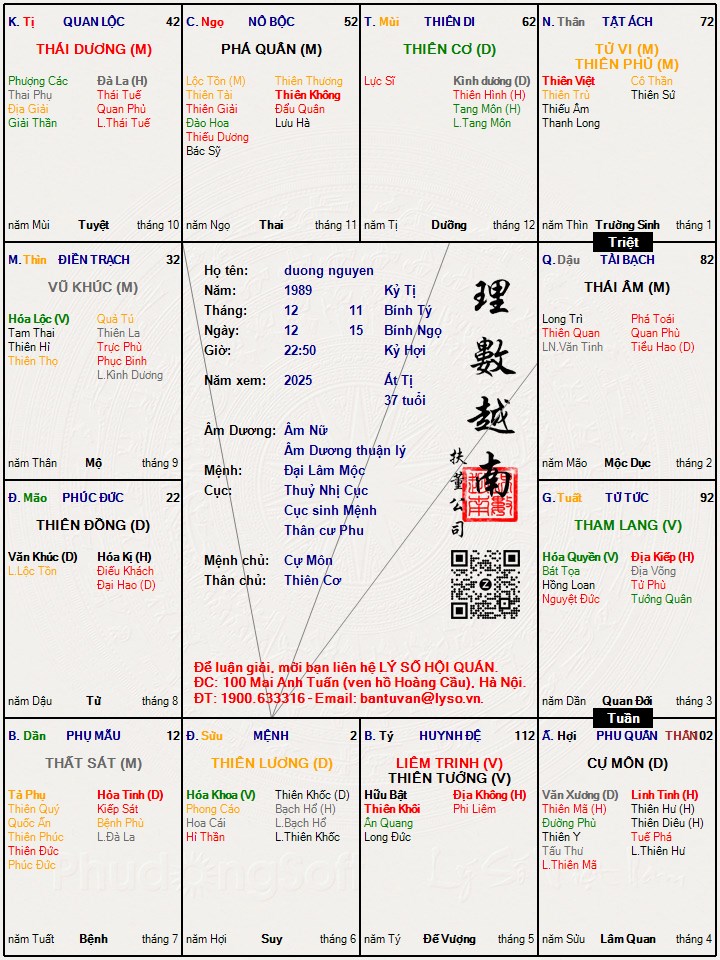 K. Tị QUAN LỘC 42
THÁI DƯƠNG (M)
Phượng Các Đà La (H)
Thai Phụ Thái Tuế
Địa Giải Quan Phủ
Giải Thần L.Thái Tuế
năm Mùi Tuyệt tháng 10
C. Ngọ NÔ BỘC 52
PHÁ QUÂN (M)
Lộc Tồn (M) Thiên Thương
Thiên Tài Thiên Không
Thiên Giải Đẩu Quân
Đào Hoa Lưu Hà
Thiếu Dương
Bác Sỹ
năm Ngọ Thai tháng 11
T. Mùi THIÊN DI 62
THIÊN CƠ (D)
Lực Sĩ Kình dương (D)
Thiên Hình (H)
Tang Môn (H)
L.Tang Môn
năm Tị Dưỡng tháng 12
N. Thân TẬT ÁCH 72
TỬ VI (M)
THIÊN PHỦ (M)
Thiên Việt Cô Thần
Thiên Trù Thiên Sứ
Thiếu Âm
Thanh Long
năm Thìn Trường Sinh tháng 1
Triệt
M. Thìn ĐIỀN TRẠCH 32
VŨ KHÚC (M)
Hóa Lộc (V) Quả Tú
Tam Thai Thiên La
Thiên Hỉ Trực Phù
Thiên Thọ Phục Binh
L.Kình Dương
năm Thân Mộ tháng 9
Họ tên: duong nguyen
Năm: 1989 Kỷ Tị
Tháng: 12 11 Bính Tý
Ngày: 12 15 Bính Ngọ
Giờ: 22:50 Kỷ Hợi
Năm xem: 2025 Ất Tị
37 tuổi
Âm Dương: Âm Nữ
Âm Dương thuận lý
Mệnh: Đại Lâm Mộc
Cục: Thuỷ Nhị Cục
Cục sinh Mệnh
Thân cư Phu
Mệnh chủ: Cự Môn
Thân chủ: Thiên Cơ
理數越南
扶董公司
Để luận giải, mời bạn liên hệ LÝ SỐ HỘI QUÁN.
ĐC: 100 Mai Anh Tuấn (ven hồ Hoàng Cầu), Hà Nội.
ĐT: 1900.633316 - Email: bantuvan@lyso.vn.
Q. Dậu TÀI BẠCH 82
THÁI ÂM (M)
Long Trì Phá Toái
Thiên Quan Quan Phù
LN.Văn Tinh Tiểu Hao (D)
năm Mão Mộc Dục tháng 2
Đ. Mão PHÚC ĐỨC 22
THIÊN ĐỒNG (D)
Văn Khúc (D) Hóa Kị (H)
L.Lộc Tồn Điếu Khách
Đại Hao (D)
năm Dậu Tử tháng 8
G. Tuất TỬ TỨC 92
THAM LANG (V)
Hóa Quyền (V) Địa Kiếp (H)
Bát Tọa Địa Võng
Hồng Loan Tử Phù
Nguyệt Đức Tướng Quân
năm Dần Quan Đới tháng 3
Tuần
B. Dần PHỤ MẪU 12
THẤT SÁT (M)
Tả Phụ Hỏa Tinh (D)
Thiên Quý Kiếp Sát
Quốc Ấn Bệnh Phù
Thiên Phúc L.Đà La
Thiên Đức
Phúc Đức
năm Tuất Bệnh tháng 7
Đ. Sửu MỆNH 2
THIÊN LƯƠNG (D)
Hóa Khoa (V) Thiên Khốc (D)
Phong Cáo Bạch Hổ (H)
Hoa Cái L.Bạch Hổ
Hỉ Thần L.Thiên Khốc
năm Hợi Suy tháng 6
B. Tý HUYNH ĐỆ 112
LIÊM TRINH (V)
THIÊN TƯỚNG (V)
Hữu Bật Địa Không (H)
Thiên Khôi Phi Liêm
Ân Quang
Long Đức
năm Tý Đế Vượng tháng 5
Ấ. Hợi PHU QUÂN THÂN 102
CỰ MÔN (D)
Văn Xương (D) Linh Tinh (H)
Thiên Mã (H) Thiên Hư (H)
Đường Phù Thiên Diêu (H)
Thiên Y Tuế Phá
Tấu Thư L.Thiên Hư
L.Thiên Mã
năm Sửu Lâm Quan tháng 4